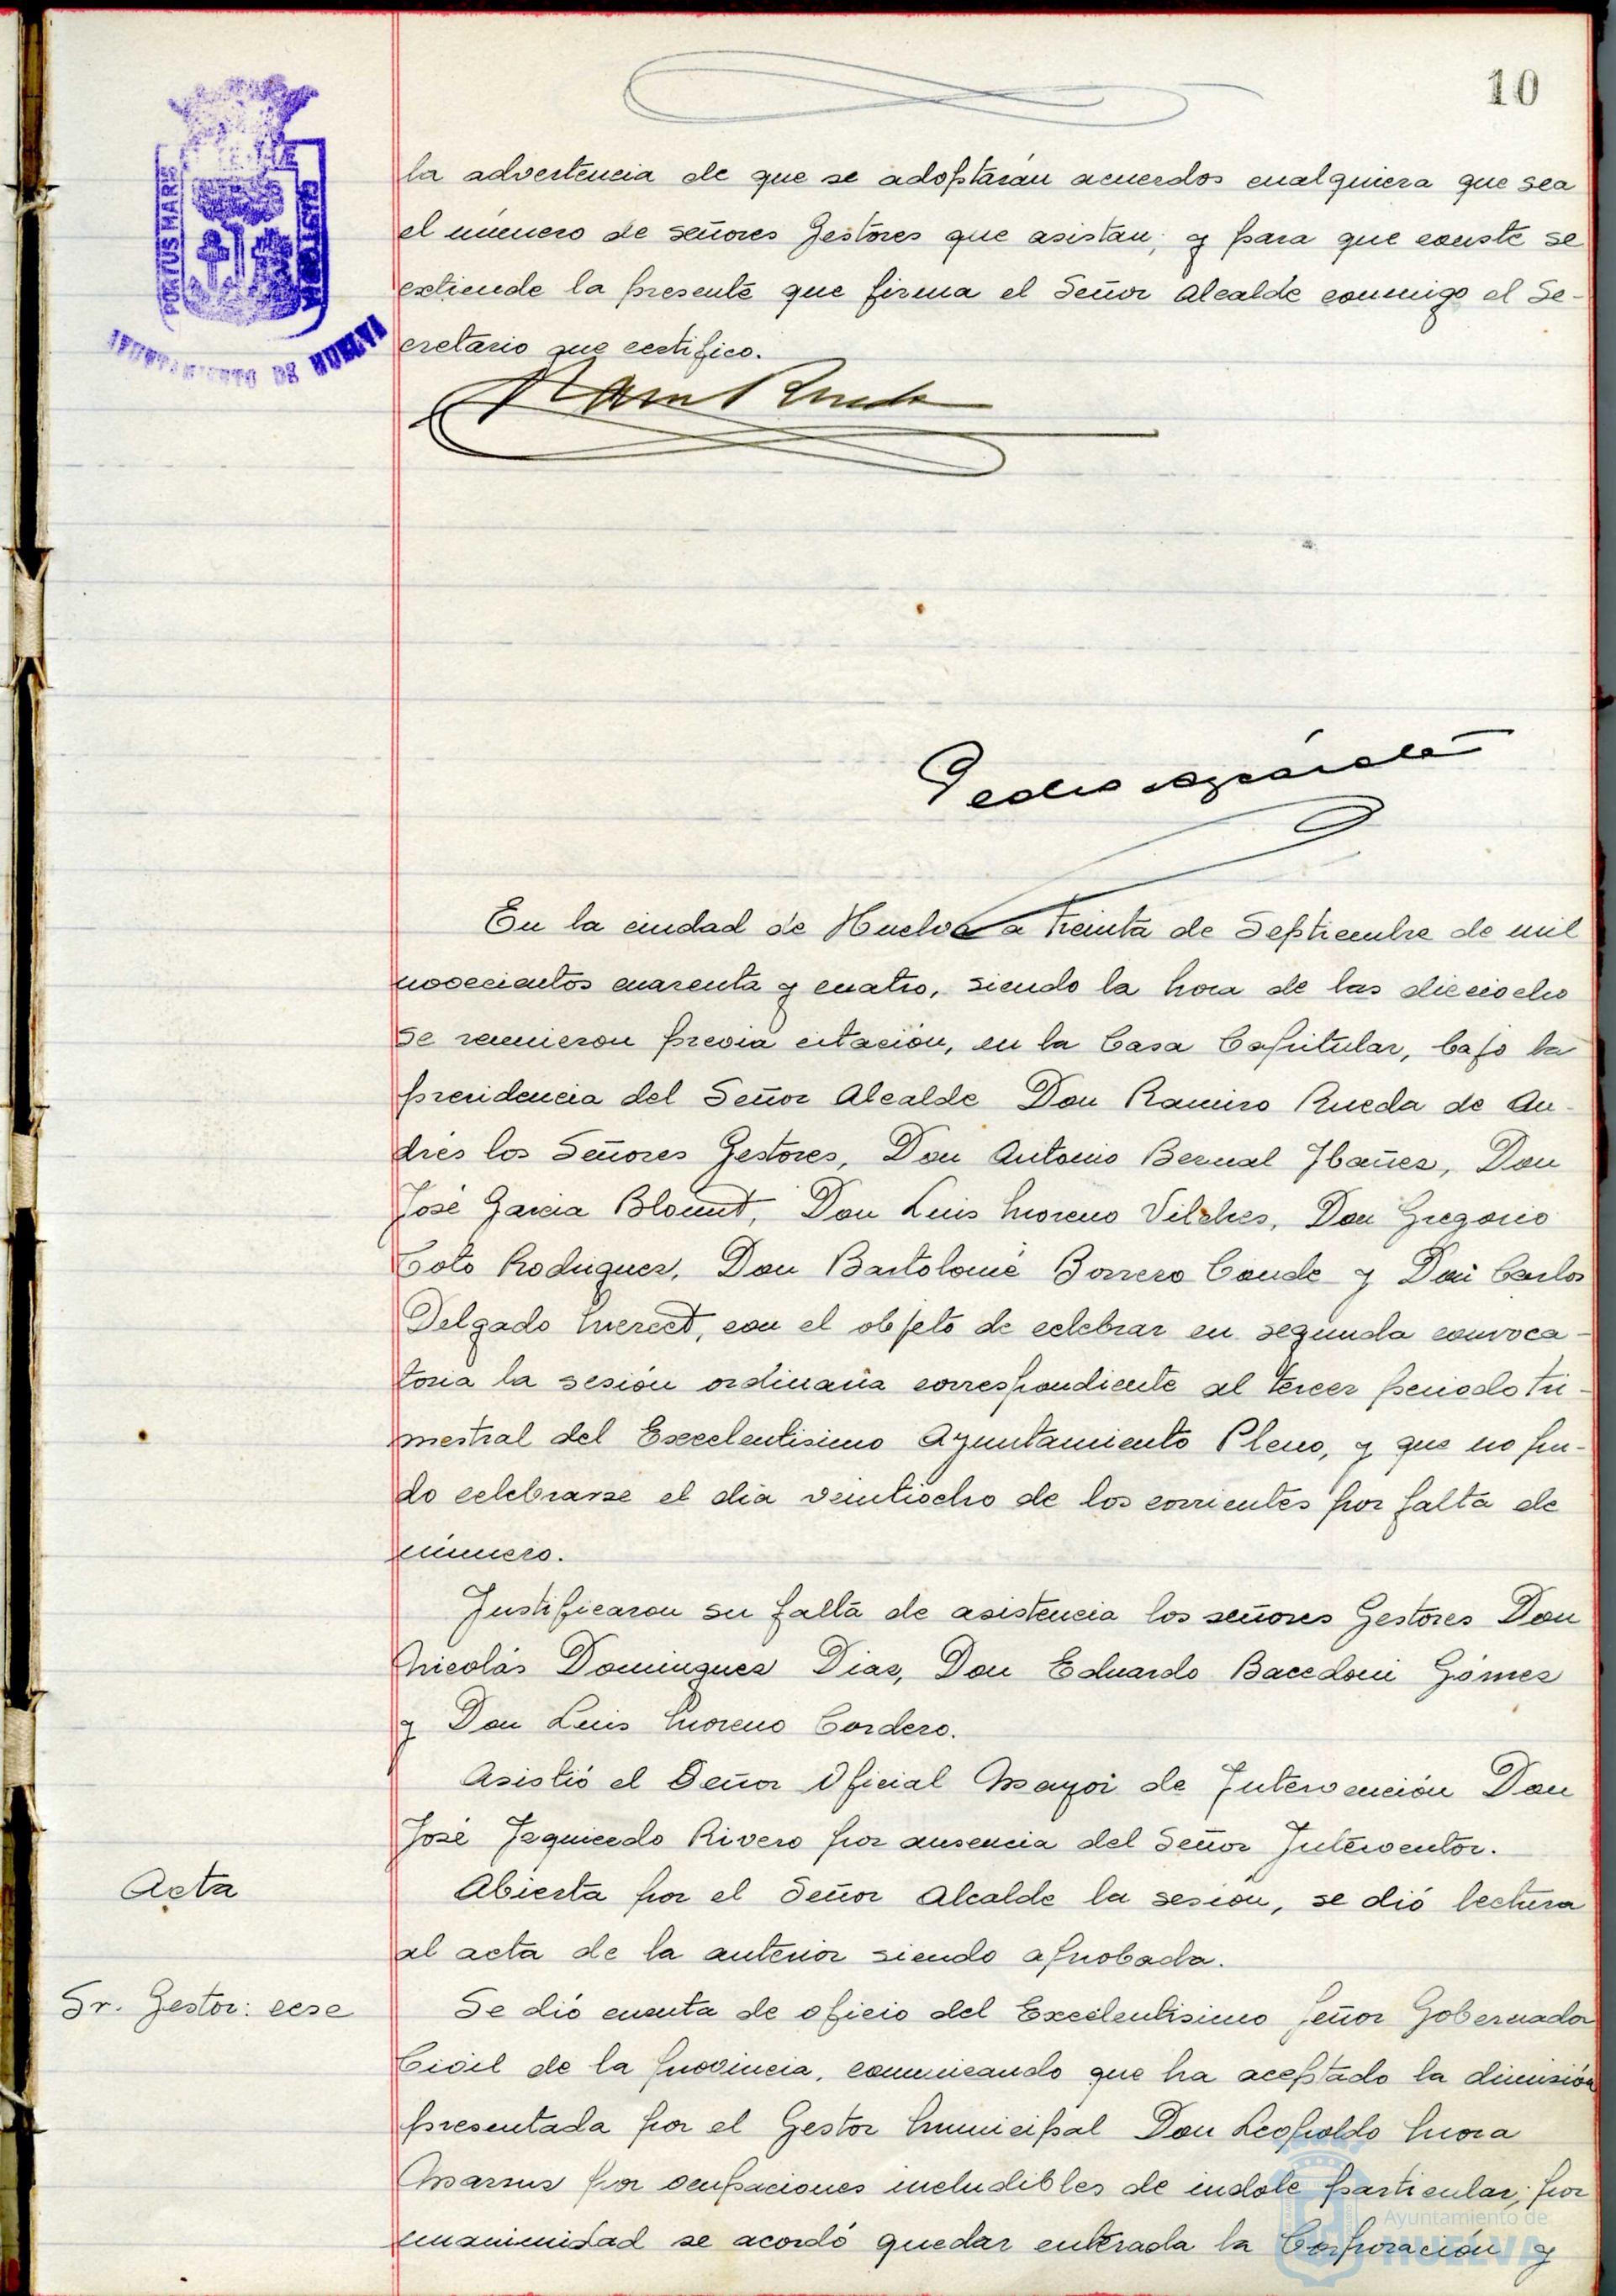 10
PORTUS MARIS
ET TERRÆ
CUSTODIA
AYUNTAMIENTO DE HUELVA
la advertencia de que se adoptarán acuerdos cualquiera que sea
el número de señores Gestores que asistan; y para que conste se
extiende la presente que firma el Señor Alcalde conmigo el Se-
cretario que certifico.
Ram Rueda
Pedro
En la ciudad de Huelva a treinta de Septiembre de mil
novecientos cuarenta y cuatro, siendo la hora de las dieciocho
se reunieron previa citación, en la Casa Capitular, bajo la
presidencia del Señor Alcalde Don Ramiro Rueda de An-
drés los Señores Gestores, Don Antonio Bernal Ibañez, Don
José Garcia Blount, Don Luis Moreno Vilches, Don Gregorio
Coto Rodriguez, Don Bartolomé Borrero Conde y Don Carlos
Delgado Merect, con el objeto de celebrar en segunda convoca-
toria la sesión ordinaria correspondiente al tercer periodo tri-
mestral del Excelentisimo Ayuntamiento Pleno, y que no pu-
do celebrarse el dia veintiocho de los corrientes por falta de
número.
Justificaron su falta de asistencia los señores Gestores Don
Nicolás Dominguez Diaz, Don Eduardo Bacedoni Gómez
y Don Luis Moreno Cordero.
Asistió el Señor Oficial Mayor de Intervención Don
José Izquierdo Rivero por ausencia del Señor Interventor.
Acta
Abierta por el Señor Alcalde la sesión, se dió lectura
al acta de la anterior siendo aprobada.
Sr. Gestor: cese
Se dió cuenta de oficio del Excelentisimo Señor Gobernador
Civil de la provincia, comunicando que ha aceptado la dimisión
presentada por el Gestor Municipal Don Leopoldo Mora
Marsus por ocupaciones ineludibles de indole particular; por
unanimidad se acordó quedar enterada la Corporación y
Ayuntamiento de
HUELVA